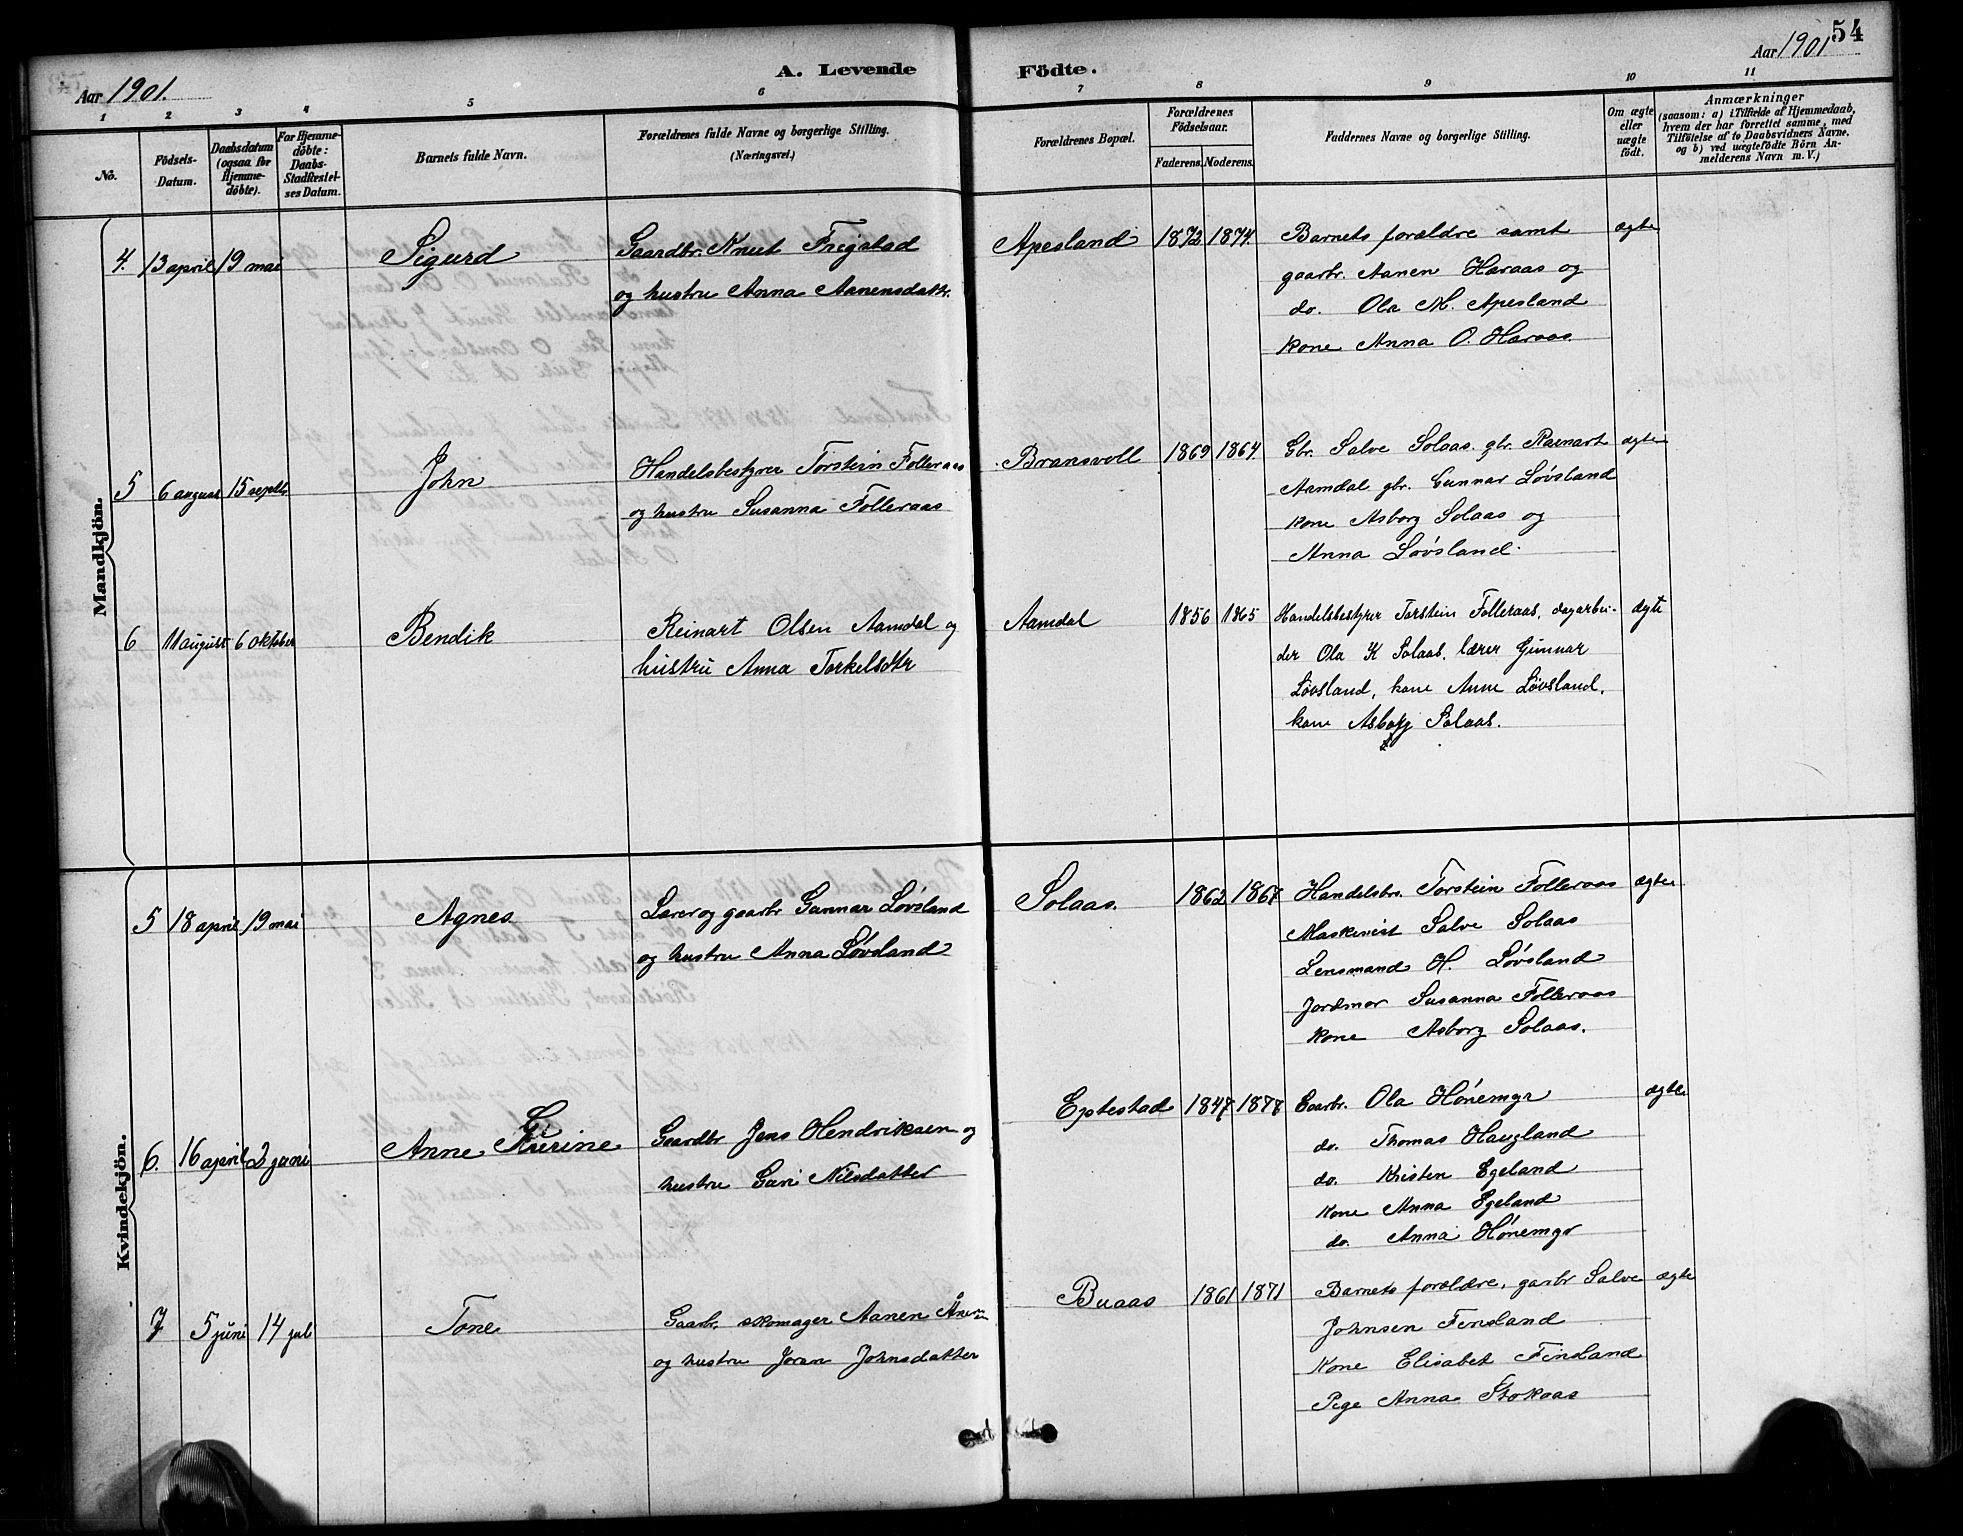 54
Aar 1901.
A. Levende Födte.
Aar 1901
1 2 3 4 5 6 7 8 9 10 11
No.
Födsels-Datum.
Daabsdatum (ogsaa for Hjemme-döbte).
For Hjemme-döbte: Daabs-Stadfæstel-ses Datum.
Barnets fulde Navn.
Forældrenes fulde Navne og borgerlige Stilling.
(Næringsvei.)
Forældrenes Bopæl.
Forældrenes Födselsaar.
Faderens. Moderens.
Faddernes Navne og borgerlige Stilling.
Om ægte eller uægte födt.
Anmærkninger
(saasom: a) i Tilfælde af Hjemmedaab,
hvem der har forrettet samme, med
Tilföielse af to Daabsvidners Navne.
og b) ved uægtefödte Börn An-
melderens Navn m. V.)
Mandkjön.
4. 13 april 19 mai Sigurd Gaardbr. Knut Frigstad Apesland 1872 1874. Barnets forældre samt ægte
og hustru Anna Aanensdattr. gaarbr. Aanen Haraas og
do. Ola M. Apesland
kone Anna O. Haraas.
5 6 august 15 septbr John Handelsbestyrer Torstein Folleraas Bransvoll 1869 1864 Gbr. Salve Solaas. gbr. Reinart ægte
og hustru Susanna Folleraas Aamdal gbr. Gunnar Løvsland
kone Asborg Solaas og
Anna Løvsland.
6 11 august 6 oktober Bendik Reinart Olsen Aamdal og Aamdal 1856 1865 Handelsbestyrer Torstein Folleraas, dagarbei- ægte
hustru Anna Torkelsdtr der Ola K Solaas, lærer Gunnar
Løvsland, kone Anne Løvsland,
kone Asborg Solaas.
Kvindekjön.
5 18 april 19 mai Agnes Lærer og gaarbr Gunnar Løvsland Solaas. 1862 1868 Handelsbes. Torstein Folleraas ægte
og hustru Anna Løvsland Maskinist Salve Solaas
Lensmand H. Løvsland
Jordmor Susanna Folleraas
kone Asborg Solaas.
6. 16 april 2 juni Anne Gurine Gaardbr Jens Hendriksen og Eptestad 1847 1878 Gaarbr. Ola Hónemyr ægte
hustru Guri Nilsdatter do. Thomas Haugland
do. Kristen Egeland
kone Anna Egeland
do. Anna Hónemyr
7 5 juni 14 juli Tone Gaarbr. skomager Aanen Ånensen Buaas 1861 1871 Barnets forældre, garbr Salve ægte
og hustru Joran Johnsdatter Johnsen Finsland
Kone Elisabet Finsland
Pige Anna Stokaas